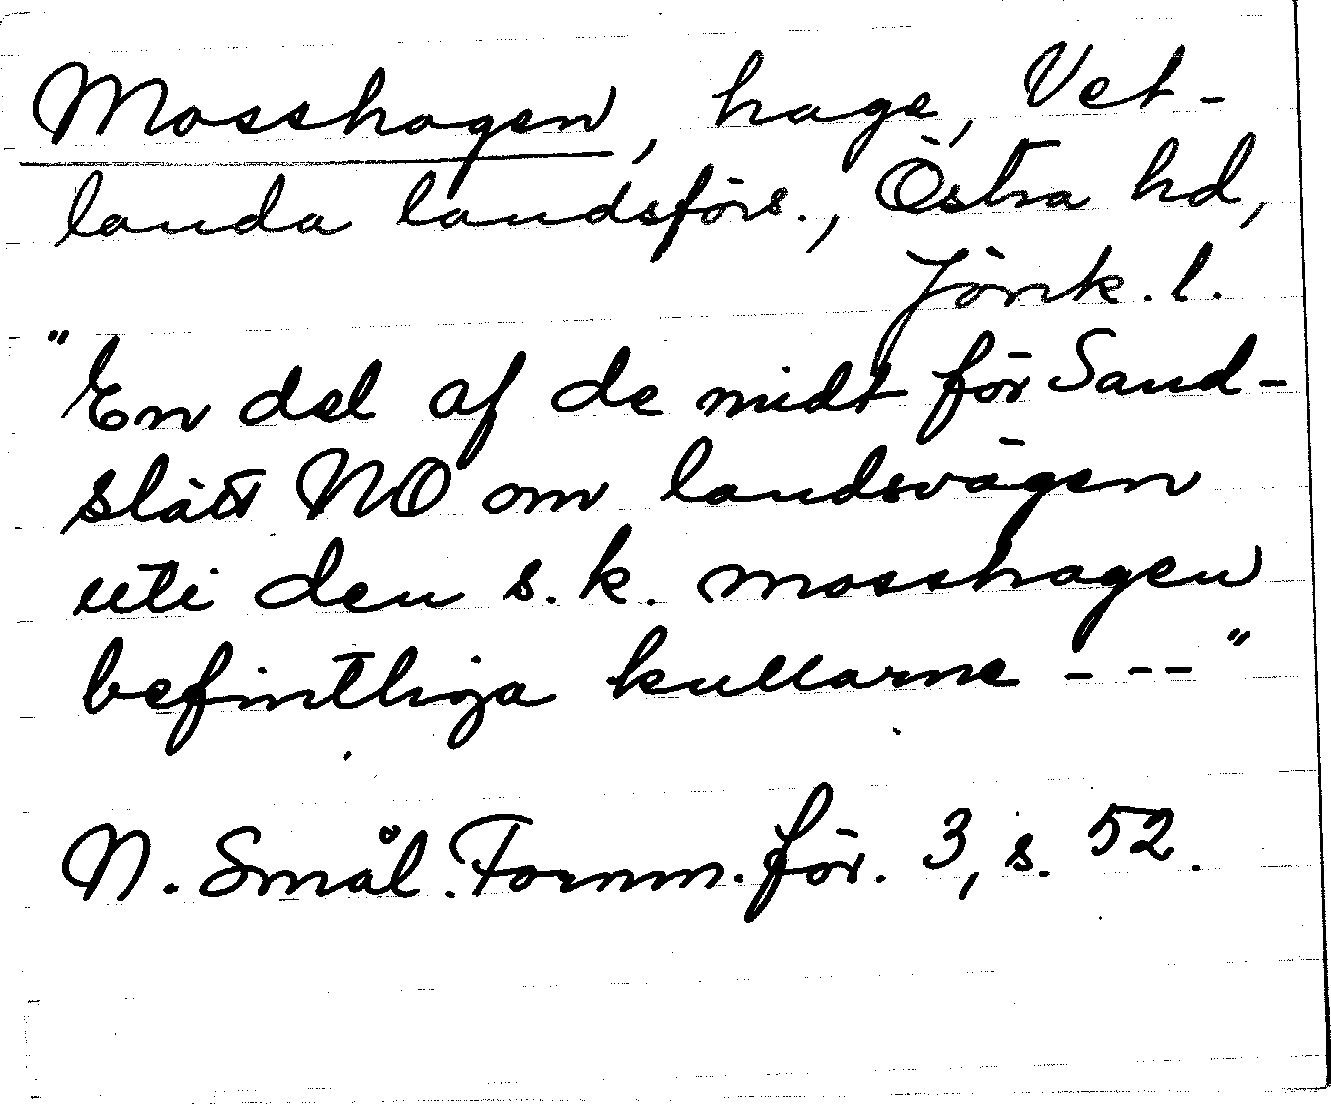 Mosshagen, hage, Vet-
landa landsförs., Östra hd,
Jönk. l.
"En del af de midt för Sand-
slätt NO om landsvägen
uti den s. k. mosshagen
befintliga kullarne - - -"
N. Smål. Fornm. för. 3, s. 52.